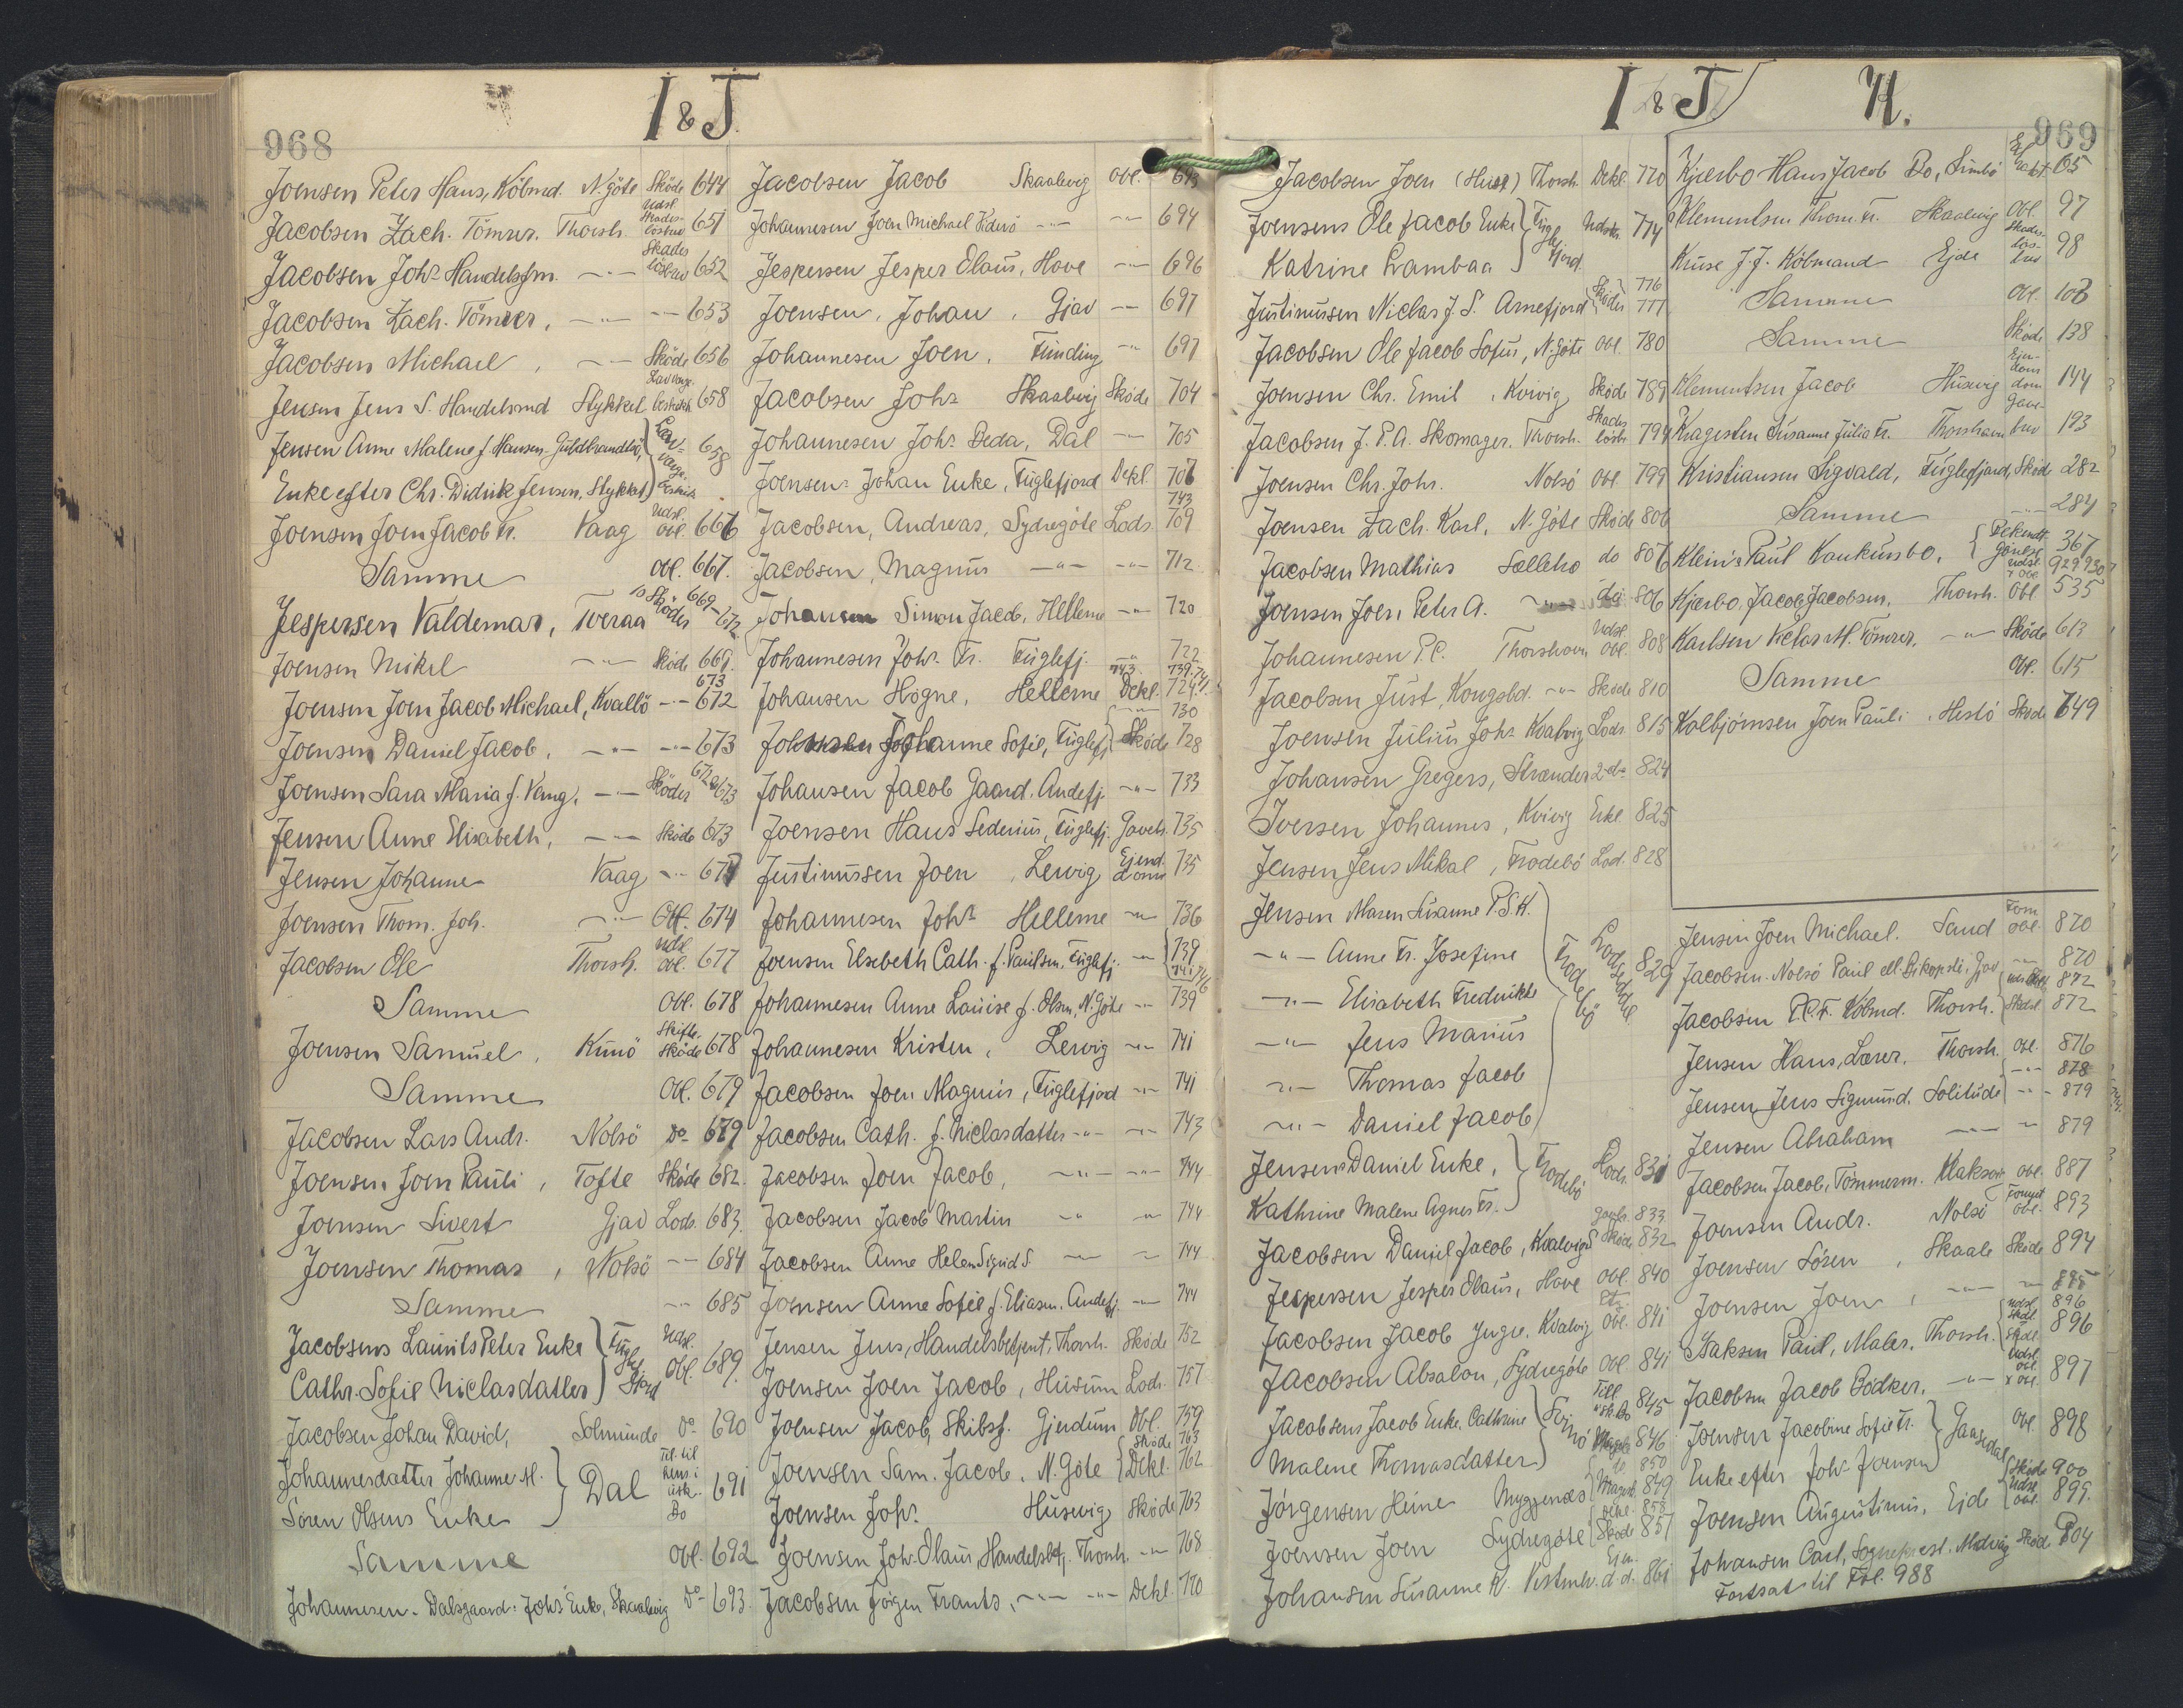 968
I & J.
Joensen Peter Hans, Köbmd. N. Göte Sköde 644
Jacobsen Zach. Tömrer. Thorsh. Udsl. Skadeslösbrev 651
Jacobsen Johs Handelsfm. -"- Skadeslösbrev 652
Jacobsen Zach. Tömrer, -"- -"- 653
Jacobsen Michael, -"- Sköde 656
Jensen Jens S. Handelsmd Stykket Lavværge beskikk. 658
Jensen Anne Malene f. Hansen-Guldbrandsö,
Enke efter Chr. Didrik Jensen, Stykket Lavværge beskik. 658
Joensen Joen Jacob Fr. Vaag Udsl. Obl. 666
Samme Obl. 667.
Jespersen Valdemar, Tveraa 10 Sköder 669-672
Joensen Mikal -"- Sköde 669.
Joensen Joen Jacob Michael, Kvalbö -"- 672 673
Joensen Daniel Jacob, -"- -"- 673
Joensen Sara Maria f. Vang, -"- Sköder 672 & 673
Jensen Anne Elisabeth, -"- Sköde 673
Jensen Johanne Vaag -"- 673
Joensen Thom. Joh. -"- Obl. 674
Jacobsen Ole Thorsh. Udsl. Obl. 677
Samme Obl. 678
Joensen Samuel, Kunö Skifte-Sköde 678
Samme Obl. 679
Jacobsen Lars Andr. Nolsö Do 679
Joensen Joen Pauli, Tofte Sköde 682.
Joensen Sivert Gjav Lods. 683.
Joensen Thomas, Nolsö -"- 684
Samme -"- 685
Jacobsens Laurits Peter Enke
Cathr. Sofie Niclasdatter Fuglefjord Udsl. Obl. 689.
Jacobsen Johan David, Solmunde Do 690
Johannesdatter Johanne M.
Sören Olsens Enke Dal Til. til hens. i usk. Bo 691
Samme Obl. 692
Johannesen-Dalsgaard: Johs Enke, Skaalevig Do 693.
Jacobsen Jacob Skaalevig Obl. 693
Johannesen Joen Michael Viderö -"- -"- 694
Jespersen Jesper Olaus, Hove -"- 696
Joensen, Johan, Gjav -"- 697
Johannesen Joen, Funding -"- 697
Jacobsen Johs Skaalevig Sköde 704
Johannesen Johs Beda, Dal -"- 705
Joensens Johan Enke, Fuglefjord Dekl. 706
Jacobsen, Andreas, Sydregöte Lods. 743 709
Jacobsen, Magnus -"- -"- 712
Johansen Simon Jacob, Hellerne -"- 720
Johannesen Johs Fr. Fuglefj. -"- 722
Johansen Högne, Hellerne Dekl. 724
Johanne Sofie, Fuglefj. Sköde 730 728
Johansen Jacob Gaard. Andefj. -"- 733
Joensen Hans Sederius, Fuglefj. Gaveb. 735
Justinussen Joen, Lervig Ejendoms 735
Johannesen Johs Hellerne -"- 736
Joensen Elsebeth Cath. f. Paulsen, Fuglefj. -"- 739
Johannesen Anne Louise f. Olsen, N. Göte -"- 739
Johannesen Kristen, Lervig -"- 741
Jacobsen Joen Magnus, Fuglefjord -"- 741
Jacobsen Cath. f. Niclasdatter -"- -"- 743
Jacobsen Joen Jacob, -"- -"- 744
Jacobsen Jacob Martin -"- -"- 744
Jacobsen Anne Helen Sigrid S. -"- -"- 744
Joensen Anne Sofie f. Eliasen, Andefj. -"- 744
Jensen Jens, Handelsbetjent, Thorsh. Sköde 752
Joensen Joen Jacob, Husum Lods. 757
Joensen Jacob, Skibsf. Gjerdum Obl. 759
Joensen Sam. Jacob, N. Göte Sköde 763 Dekl. 762
Joensen Johs. Husevig Sköde 763
Joensen Joh. Olaus, Handelsbetj. Thorsh. -"- 768
Jacobsen Jörgen Frants, -"- -"- Dekl. 770
969
I & J
K.
Jacobsen Joen (Hust.) Thorsh. Dekl. 770
Joensens Ole Jacob Enke
Katrine Lambaa Fuglefjord 774
Justinussen Niclas J. S. Arnefjord Sköder 776 777
Jacobsen Ole Jacob Sofus, N. Göte Obl. 780
Joensen Chr. Emil, Kvivig Sköde 789
Jacobsen J. P. A. Skomager. Thorsh. Skadeslösb. 794
Joensen Chr. Johs. Nolsö Obl. 799
Joensen Zach. Karl, N. Göte Sköde 806
Jacobsen Mathias Selletræ do 806
Joensen Joen Peter A. -"- do 806
Johannesen P. C. Thorshavn Udsl. Obl. 808
Jacobsen Just, Kongsbd. -"- Sköde 810
Joensen Julius Johs Kvalvig Lods. 815
Johansen Gregers, Strænder 2 do 824
Iversen Johannes, Kvivig Erkl. 825
Jensen Jens Mikal, Frodebö Lod. 828
Jensen Maren Susanne P. S. K.
-"- Anne Fr. Josefine
-"- Elisabeth Fredrikke
-"- Jens Marius
-"- Thomas Jacob
-"- Daniel Jacob Frodebö Lodseddel 829
Jensens Daniel Enke,
Kathrine Malene Agnes Fr. Frodebö Lods. 831
Jacobsen Daniel Jacob, Kvalvig Gavbr. 833 Sköde 832
Jespersen Jesper Olaus, Hove Obl. 840
Jacobsen Jacob Yngre, Kvalvig Obl. 841
Jacobsen Absalon, Sydregöte Obl 841
Jacobsens Jacob Enke, Cathrine
Malene Thomasdatter Svinö 845 846
Jörgensen Heine Myggenæs Mageb. 849 850
Joensen Joen Sydregöte Dekl. 858 Sköde 857
Johansen Susanne K. Vestmh. Ejen. d. d. 861
Kjærbo Hans Jacob Bo, Sumbö 65
Klementsen Thom. Fr. Skaalevig Obl. 97
Kruse J. J. Köbmand Ejde Skadeslösbrev 98
Samme Obl. 103
Samme Sköde 138
Klementsen Jacob Husevig Ejendom 144
Kragesten Susanne Julia Fr. Thorshavn Gavebrev 193
Kristiansen Sigvald, Fuglefjord, Sköde 282
Samme -"- 284
Klein's Paul Konkursbo, Bekendtgörelse 367 Udsl. x Obl. 929 930
Kjærbo, Jacob Jacobsen, Thorsh. Obl 535
Karlsen Niclas M. Tömrer, -"- Sköde 613
Samme Obl. 615
Kolbjörnsen Joen Pauli, Hestö Sköde 649
Jensen Joen Michael. Sand Obl. 870
Jacobsen-Nolsö Paul M. Biskopstö, Gjov -"- 870
Jacobsen P.C.F. Köbmd. Thorsh. 872 Skdsl. 872
Jensen Hans, Lærer. Thorsh. Obl. 876
Jensen, Jens Sigmund. Solitude -"- 878 -"- 879
Jensen Abraham -"- -"- 879
Jacobsen Jacob, Tömmerm. Klaksvig Obl. 887
Joensen Andr. Nolsö Obl. 893
Joensen Sören, Skaale Sköde 894
Joensen Joen, -"- -"- 895
Isaksen Paul, Maler, Thorsh. Udsl. Skdsl. 896 Skdsl. 896
Jacobsen Jacob Bödker, -"- Udsl. Obl. x Obl. 897
Joensen Jacobine Sofie Fr.
Enke efter Johs Joensen Gaasedal Obl. 898
Joensen Augustinus, Ejde Sköde 900 Udsl. Obl. 899.
Johansen Carl, Sognepræst. Midvaag Sköde 904
Fortsat til Fol. 988